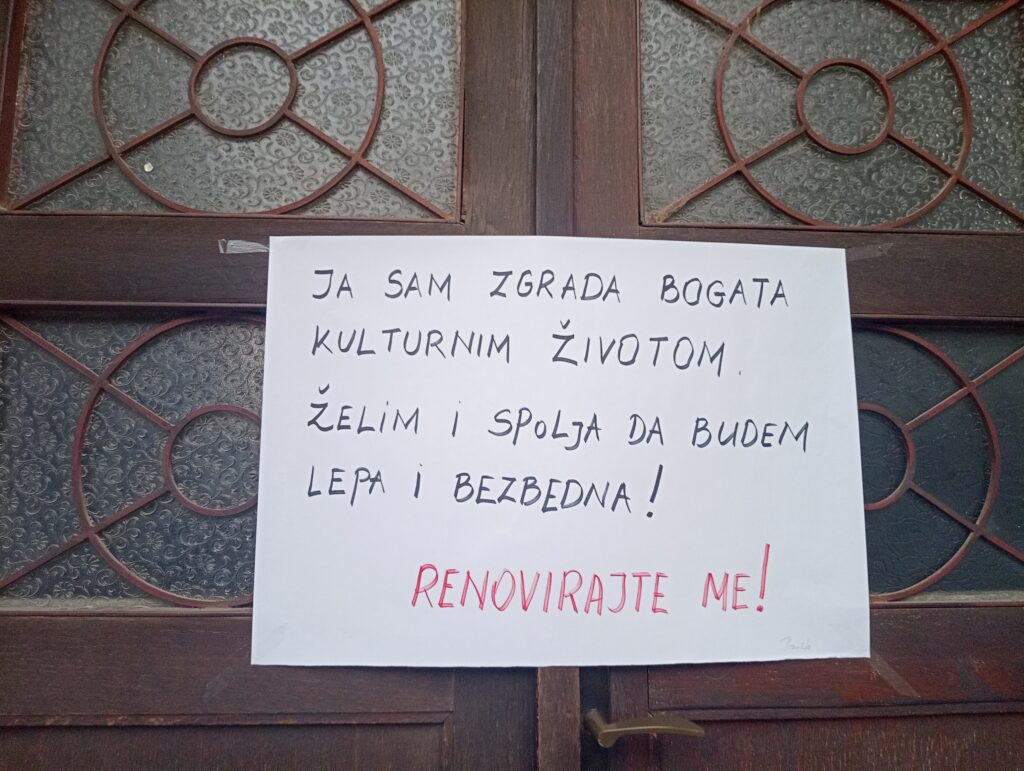 JA SAM ZGRADA BOGATA
KULTURNIM ŽIVOTOM.
ŽELIM I SPOLJA DA BUDEM
LEPA I BEZBEDNA!
RENOVIRAJTE ME!